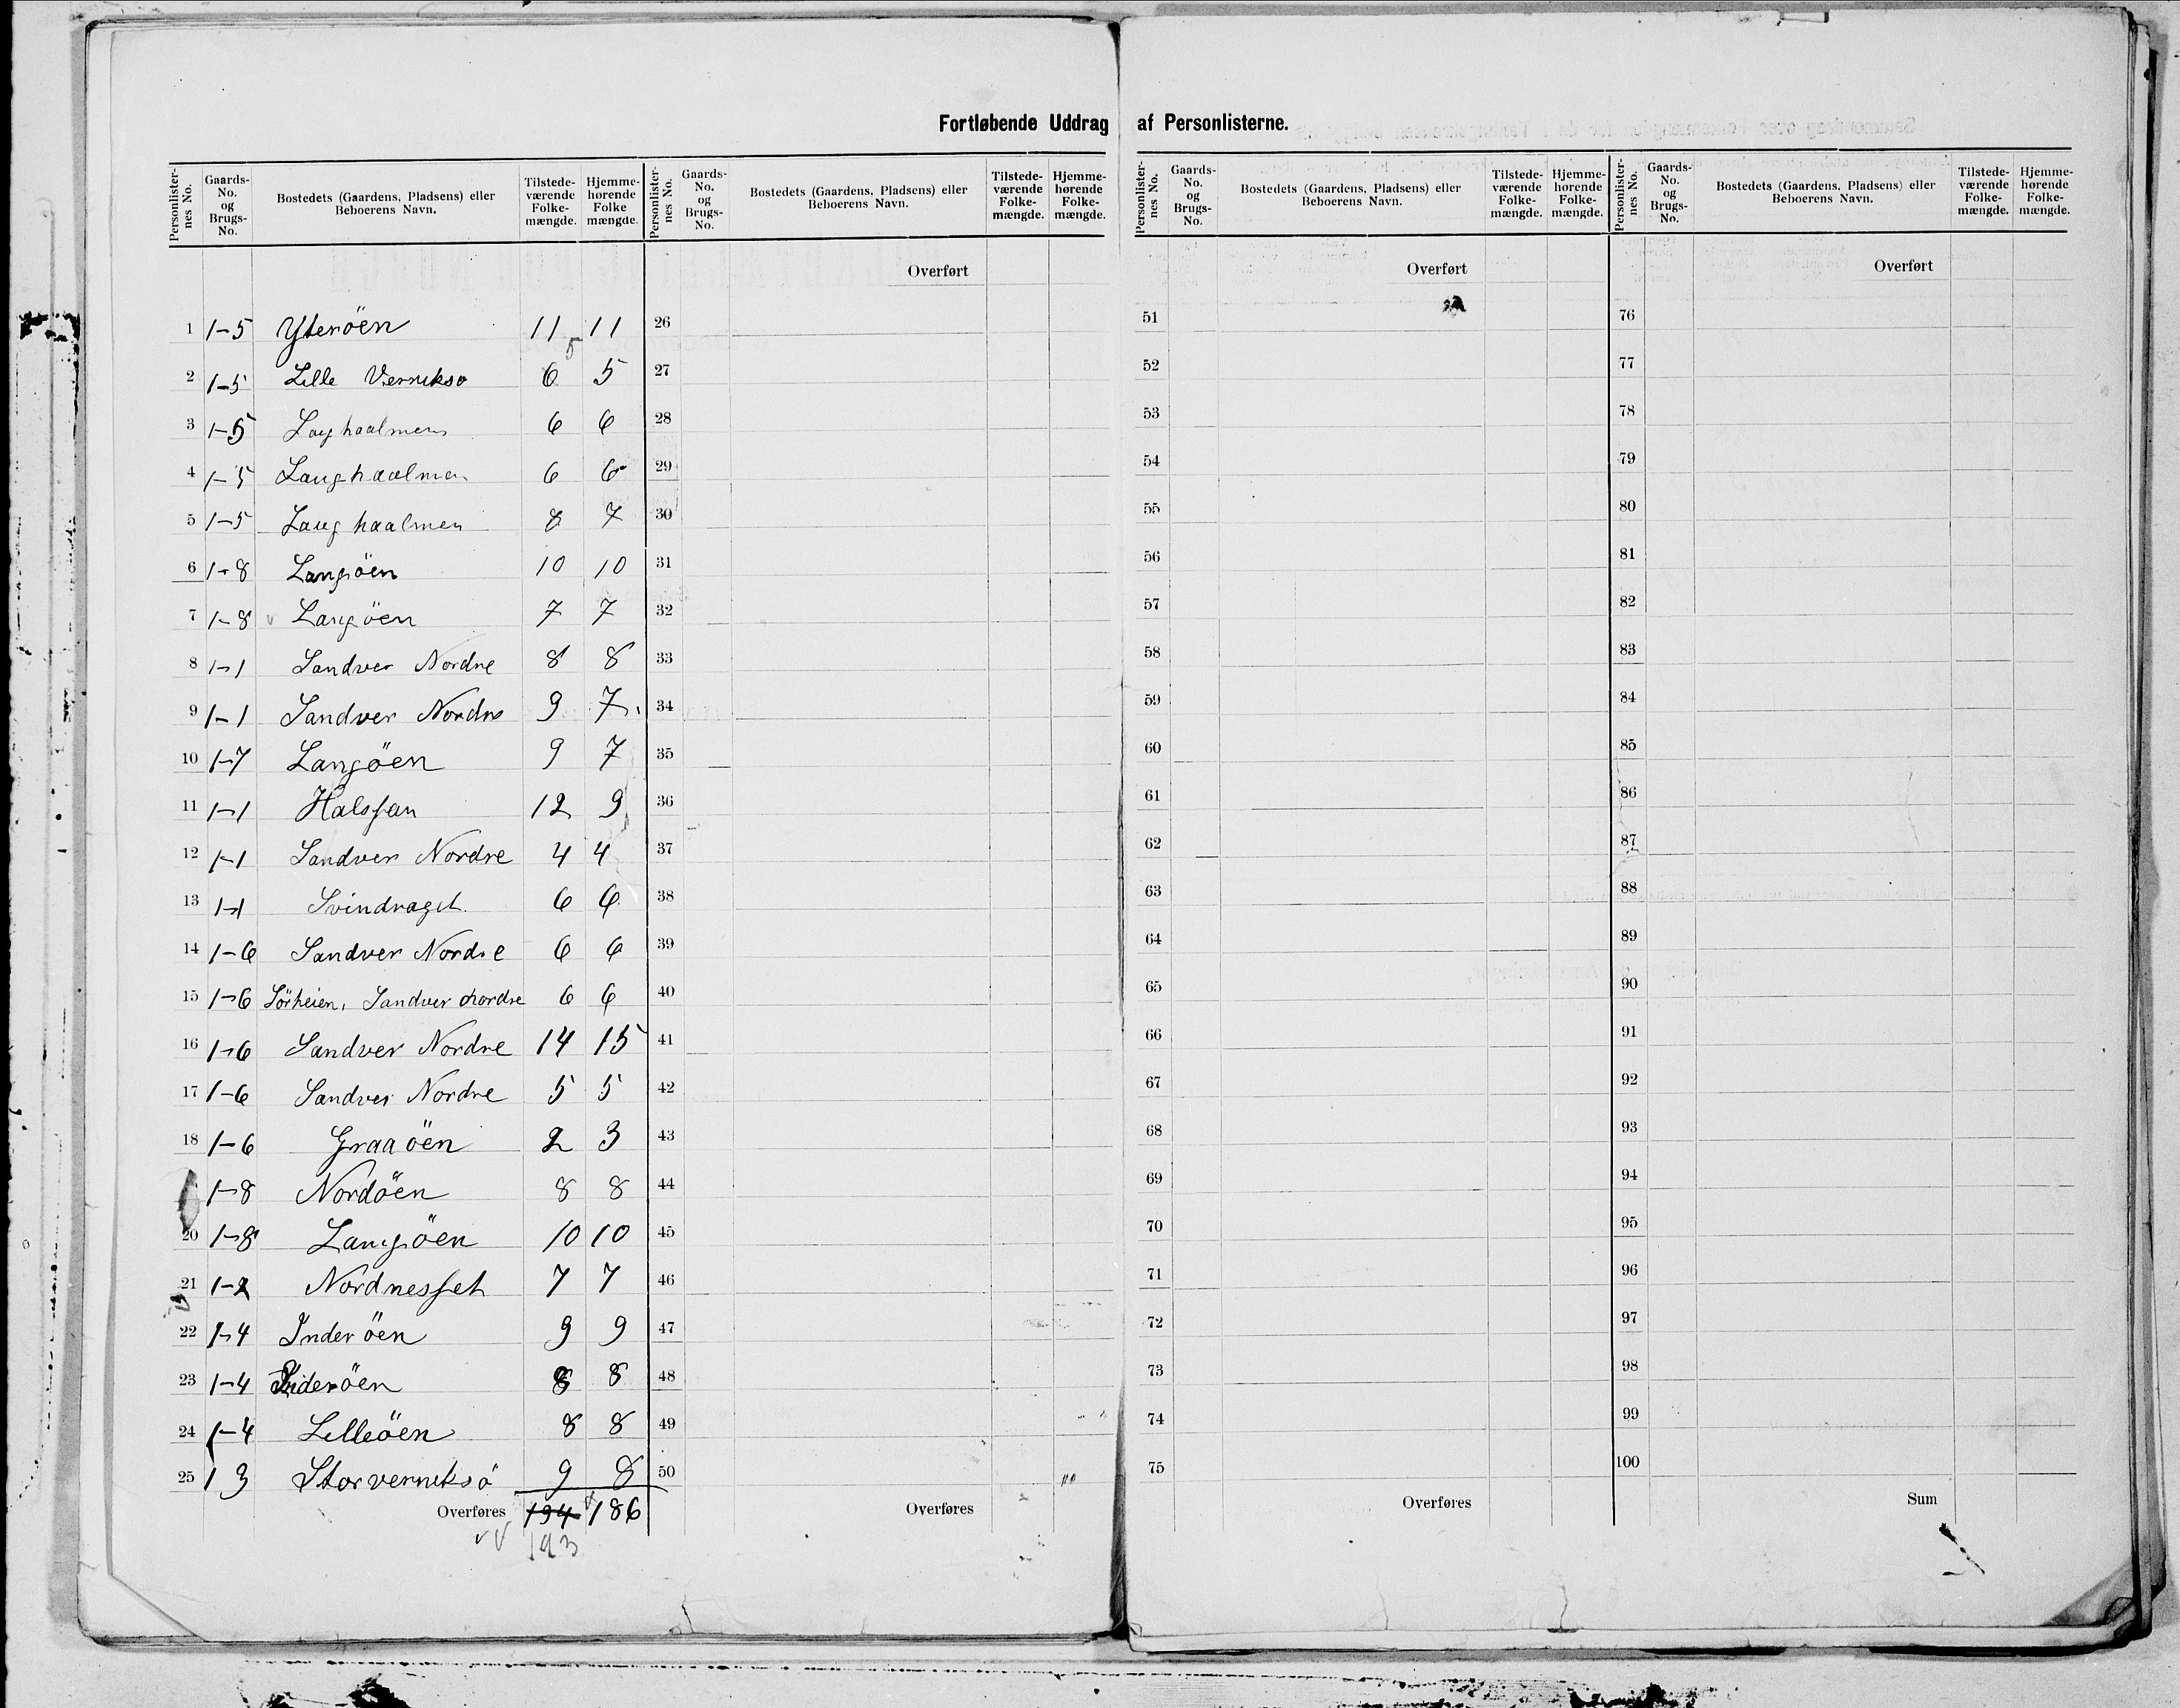 Fortløbende Uddrag af Personlisterne.
Personlister-nes No. Gaards-No. og Brugs-No. Bostedets (Gaardens, Pladsens) eller Beboerens Navn. Tilstede-værende Folke-mængde. Hjemme-hørende Folke mængde.
Personlister-nes No. Gaards-No. og Brugs-No. Bostedets (Gaardens, Pladsens) eller Beboerens Navn. Tilstede-værende Folke-mængde. Hjemme-hørende Folke-mængde.
Personlister-nes No. Gaards-No. og Brugs-No. Bostedets (Gaardens, Pladsens) eller Beboerens Navn. Tilstede-værende Folke-mængde. Hjemme-hørende Folke-mængde.
Personlister-nes No. Gaards-No. og Brugs-No. Bostedets (Gaardens, Pladsens) eller Beboerens Navn. Tilstede-værende Folke-mængde. Hjemme-hørende Folke-mængde.
Overført Overført Overført
1 1-5 Yteröen 11 11 26 51 76
5
2 1-5 Lille Vernikso 6 5 27 52 77
3 1-5 Laughaalmen 6 6 28 53 78
4 1-5 Laughaalmen 6 6 29 54 79
5 1-5 Laughaalmen 8 7 30 55 80
6 1-8 Langöen 10 10 31 56 81
7 1-8 Langöen 7 7 32 57 82
8 1-1 Sandver Nordre 8 8 33 58 83
9 1-1 Sandver Nordre 9 7 34 59 84
10 1-7 Langöen 9 7 35 60 85
11 1-1 Halsfan 12 9 36 61 86
12 1-1 Sandver Nordre 4 4 37 62 87
13 1-1 Svindraget 6 6 38 63 88
14 1-6 Sandver Nordre 6 6 39 64 89
15 1-6 Sörheien, Sandver nordre 6 6 40 65 90
16 1-6 Sandver Nordre 14 15 41 66 91
17 1-6 Sandver Nordre 5 5 42 67 92
18 1-6 Graaöen 2 3 43 68 93
1-8 Nordöen 8 8 44 69 94
20 1-8 Langöen 10 10 45 70 95
21 1-2 Nordnesset 7 7 46 71 96
22 1-4 Inderöen 9 9 47 72 97
23 1-4 Inderöen 8 8 48 73 98
24 1-4 Lilleöen 8 8 49 74 99
25 1 3 Storverniksö 9 8 50 75 100
Overføres 194 186 Overføres Overføres Sum
193